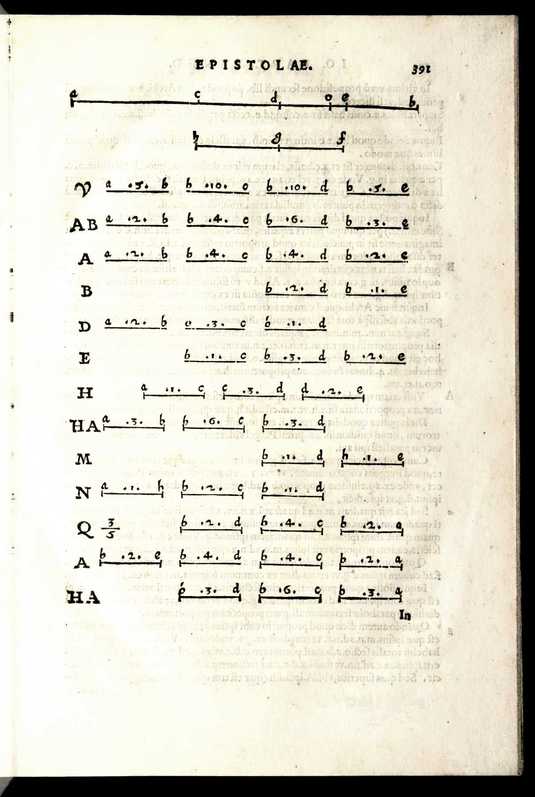 EPISTOLAE. 391
a c d o e b
h g f
V a .5. b b .10. c b .10. d b .5. e
AB a .2. b b .4. c b .6. d b .3. e
A a .2. b b .4. c b .4. d b .2. e
B b .2. d b .1. e
D a .2. b c .3. c b .1. d
E b .1. c b .3. d b .2. e
H a .1. c c .3. d d .2. e
HA a .3. b b .6. c b .3. d
M b .1. d h .1. e
N a .1. h b .2. c b .1. d
Q 3/5 b .2. d b .4. c b .2. a
A b .2. e b .4. d b .4. c b .2. a
HA .3. d b .6. c b .3. a
In